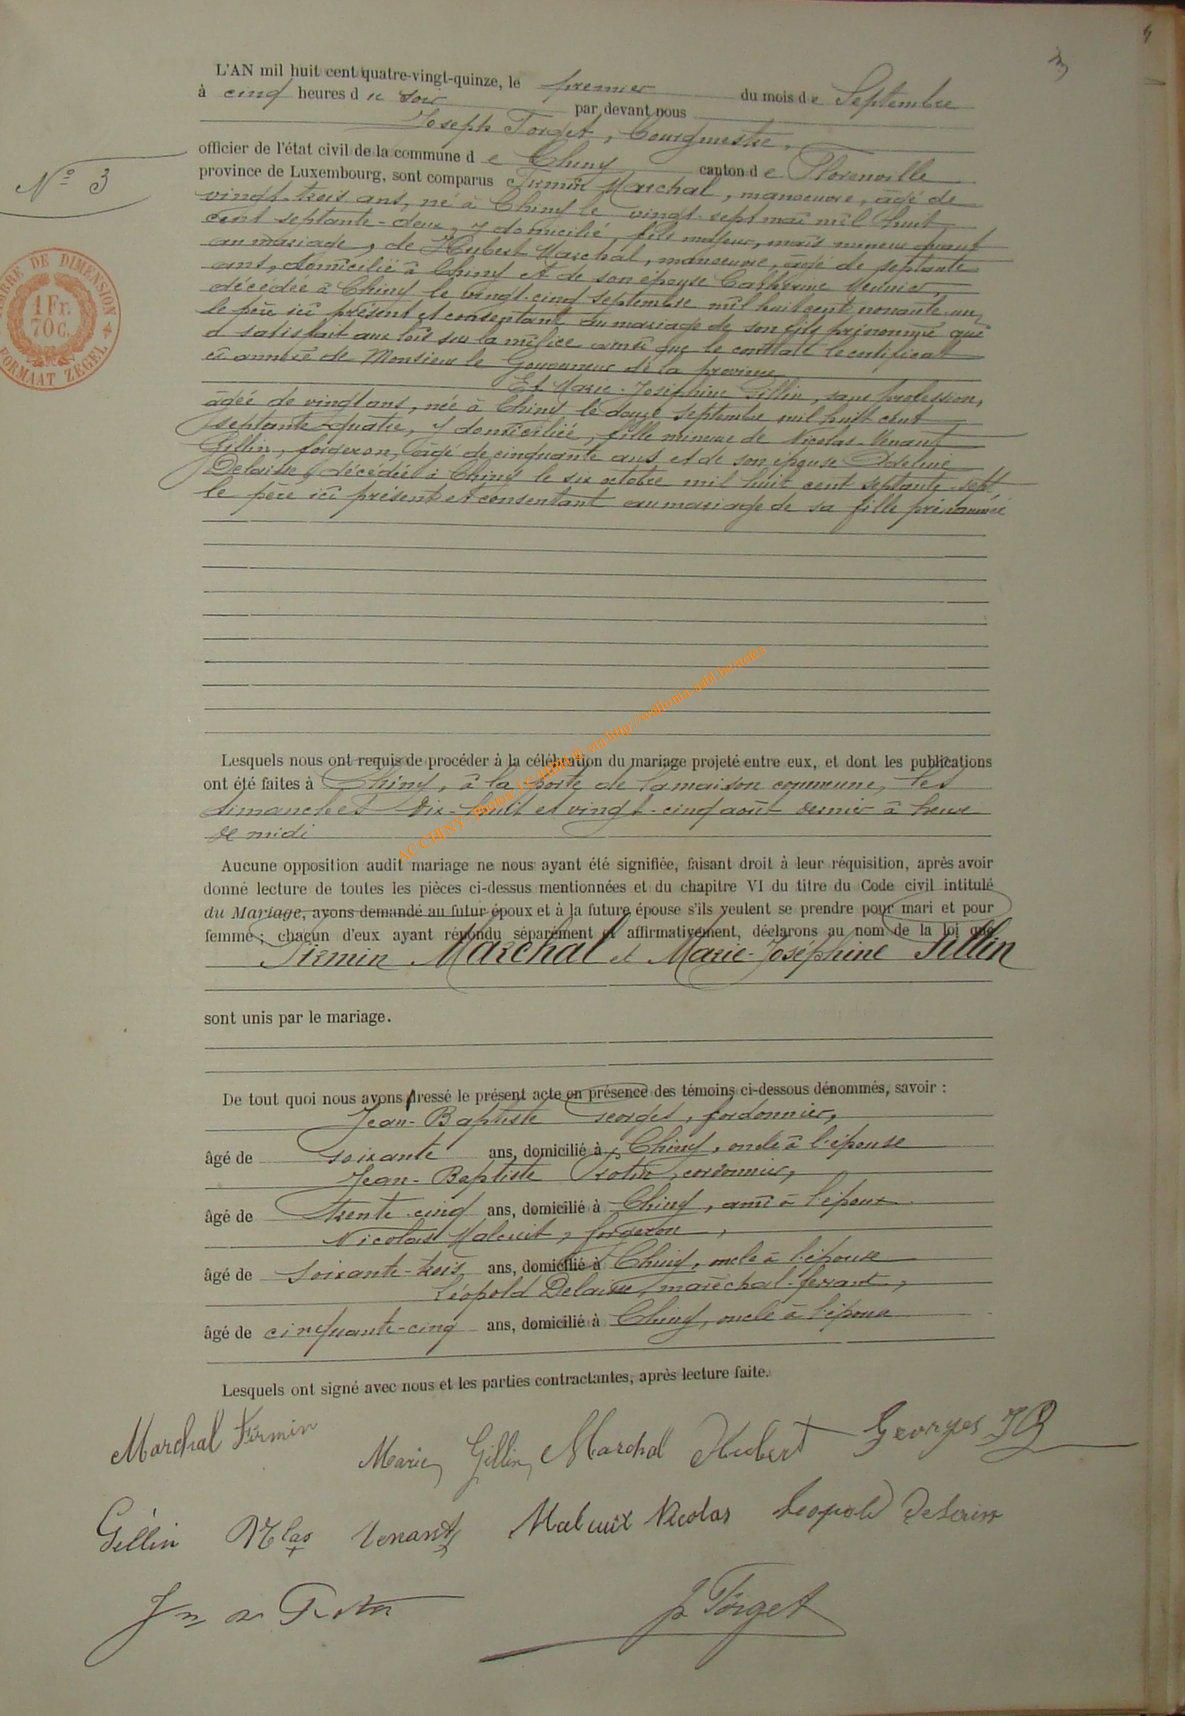 4
3
L'AN mil huit cent quatre-vingt-quinze, le premier du mois de Septembre
à cinq heures du soir par devant nous
Joseph Forget, Bourgmestre,
officier de l'état civil de la commune de Chiny canton de Florenville
N° 3
province de Luxembourg, sont comparus Firmin Marchal, manoeuvre, âgé de
vingt-trois ans, né à Chiny le vingt-sept mai mil huit
cent septante-deux, y domicilié, fils majeur, mais mineur quant
au mariage, de Hubert Marchal, manoeuvre, âgé de septante
ans, domicilié à Chiny et de son épouse Catherine Meunier,
décédée à Chiny le vingt-cinq septembre mil huit cent nonante-un,
le père ici présent et consentant au mariage de son fils prénommé qui
a satisfait aux lois sur la milice ainsi que le constate le certificat
ci annexé de Monsieur le Gouverneur de la province
Et Marie-Joséphine Gillin, sans profession,
âgée de vingt ans, née à Chiny le douze septembre mil huit cent
septante-quatre, y domiciliée, fille mineure de Nicolas-Venant
Gillin, forgeron, âgé de cinquante ans et de son épouse Adeline
Delaisse décédée à Chiny le six octobre mil huit cent septante-sept,
le père ici présent et consentant au mariage de sa fille prénommée
TIMBRE DE DIMENSION
1 Fr.
70 c.
FORMAAT ZEGEL
Lesquels nous ont requis de procéder à la célébration du mariage projeté entre eux, et dont les publications
ont été faites à Chiny, à la porte de la maison commune, les
dimanches dix-huit et vingt-cinq août dernier à heure
de midi
Aucune opposition audit mariage ne nous ayant été signifiée, faisant droit à leur réquisition, après avoir
donné lecture de toutes les pièces ci-dessus mentionnées et du chapitre VI du titre du Code civil intitulé
du Mariage, avons demandé au futur époux et à la future épouse s'ils veulent se prendre pour mari et pour
femme ; chacun d'eux ayant répondu séparément et affirmativement, déclarons au nom de la loi que
Firmin Marchal et Marie-Joséphine Gillin
sont unis par le mariage.
De tout quoi nous avons dressé le présent acte en présence des témoins ci-dessous dénommés, savoir :
Jean-Baptiste Georges, cordonnier,
âgé de soixante ans, domicilié à Chiny, oncle à l'épouse
Jean-Baptiste Protin, cordonnier,
âgé de trente-cinq ans, domicilié à Chiny, ami à l'époux
Nicolas Malcuit, forgeron,
âgé de soixante-trois ans, domicilié à Chiny, oncle à l'épouse
Léopold Delaisse, maréchal-ferrant,
âgé de cinquante-cinq ans, domicilié à Chiny, oncle à l'époux
Lesquels ont signé avec nous et les parties contractantes, après lecture faite.
Marchal Firmin
Marie Gillin Marchal Hubert Georges JB
Gillin Nlas Venant Malcuit Nicolas Léopold Delaisse
J. Forget